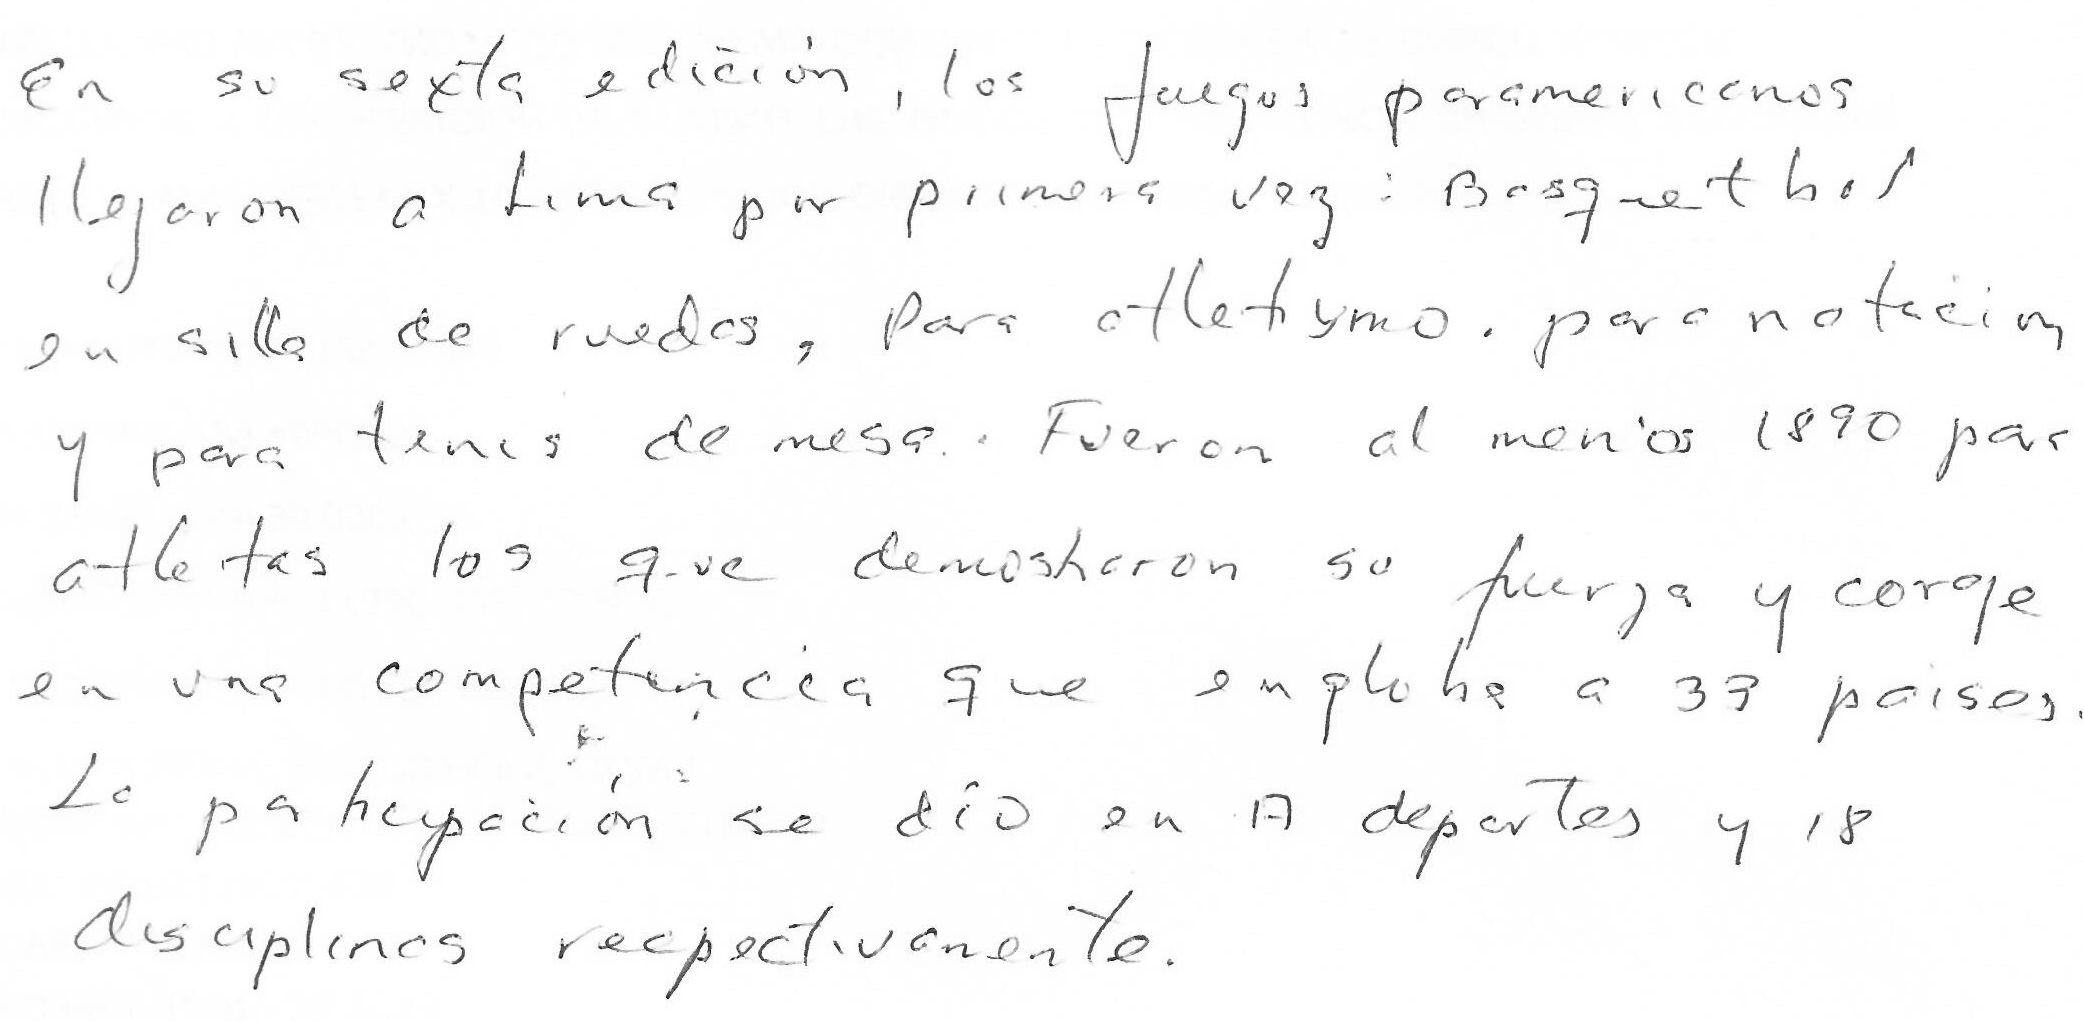 En su sexta edición, los juegos paramericanos
llegaron a Lima por primera vez: Basquetbol
en silla de ruedas, Para atletismo. para natación
y para tenis de mesa. Fueron al menos 1890 para
atletas los que demostraron su fuerza y coraje
en una competencia que engloba a 33 paises.
La paticipación se dio en 17 deportes y 18
disciplinas recpectivamente.